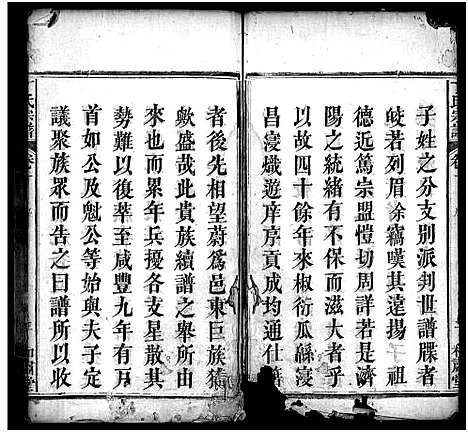 子姓之分支別派判世譜牒者
皎若列眉徐竊嘆其遠揚 祖
德近篤宗盟愷切周詳若是濟
陽之統緒有不克而滋大者乎
以故四十餘年來椒衍瓜緜寖
昌寖熾遊庠序貢成均通仕籍
者後先相望蔚爲邑東巨族猗
歟盛哉此貴族續譜之舉所由
來也亦累年兵擾各支星散其
勢難以復萃至咸豐九年有門
首如公及魁公等始與夫子定
議聚族眾而告之曰譜所以收
氏宗譜